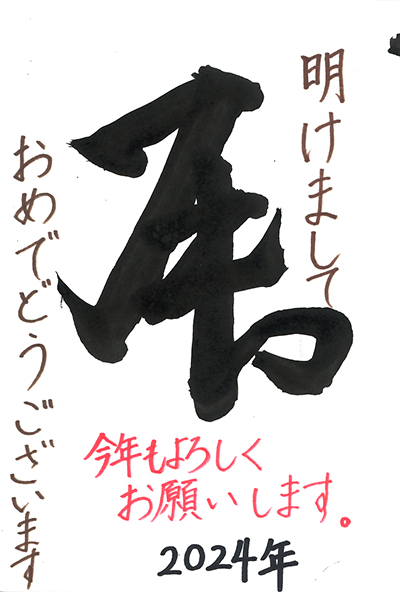 明けまして
おめでどうございます
今年もよろしく
お願いします。
2024年